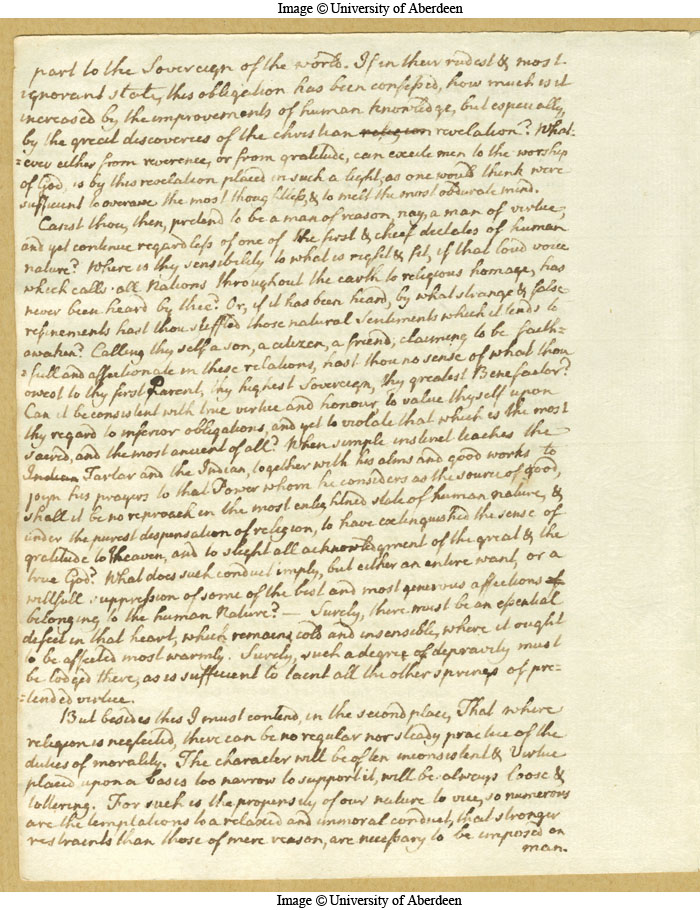 Image © University of Aberdeen
part to the Sovereign of the world. If in their rudest & most
ignorant state, this obligation has been confessed, how much is it
increased by the improvements of human knowledge, but especially,
by the great discoveries of the christian religion revelation? What-
=ever either from reverence, or from gratitude, can excite men to the worship
of God, is by this revelation placed in such a light, as one would think were
sufficient to overawe the most thoughtless, & to melt the most obdurate mind.
Canst thou, then, pretend to be a man of reason, nay a man of virtue,
and yet continue regardless of one of the first & chief dictates of human
nature? Where is thy sensibility to what is right & fit, if that loud voice
which calls all Nations throughout the earth to religious homage, has
never been heard by thee? Or, if it has been heard, by what strange & false
refinements hast thou stiffled those natural sentiments which it tends to
awaken? Calling thy self a son, a citizen, a friend; claiming to be faith-
=full and affectionate in these relations, hast thou no sense of what thou
owest to thy first Parent, thy highest Sovereign, thy greatest Benefactor?
Can it be consistent with true virtue and honour to value thyself upon
thy regard to inferior obligations, and yet to violate that which is the most
sacred, and the most ancient of all? When simple instinct teaches the
Tartar and the Indian, together with his alms and good works to
joyn his prayers to that Power whom he considers as the source of good,
shall it be no reproach in the most enlightned state of human nature, &
under the purest dispensation of religion, to have extinguished the sense of
gratitude to Heaven, and to slight all acknowledgment of the great & the
true God? What does such conduct imply, but either an entire want, or a
willfull suppression of some of the best and most generous affections
belonging to the human Nature? — Surely, there must be an essential
defect in that heart, which remains cold and insensible, where it ought
to be affected most warmly. Surely, such a degree of depravity must
be lodged there, as is sufficient to taint all the other springs of pre-
=tended virtue.
But besides this I must contend, in the second place, That where
religion is neglected, there can be no regular nor steady practice of the
duties of morality. The character will be often inconsistent & Virtue
placed upon a basis too narrow to support it, will be always loose &
tottering. For such is the propensity of our nature to vice, so numerous
are the temptations to a relaxed and immoral conduct, that stronger
restraints than those of mere reason, are necessary to be imposed on
man.
Image © University of Aberdeen